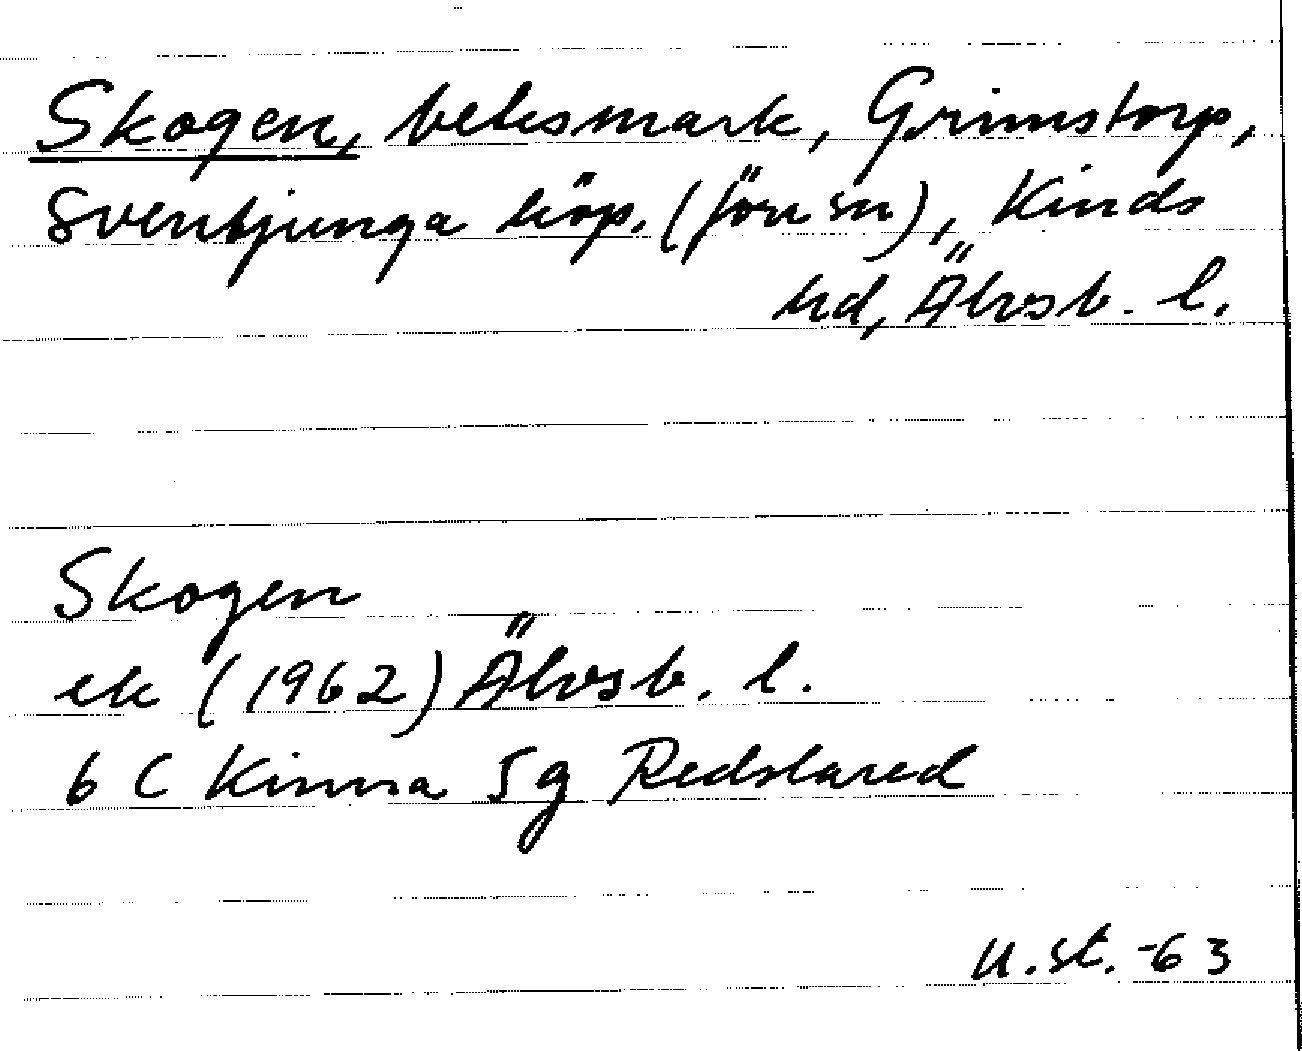 Skogen, betesmark, Grimstorp,
Svenljunga köp. (förs:n), Kinds
hd, Älvsb. l.
Skogen
ek (1962) Älvsb. l.
6 C Kinna 5 g Redslared
U.st. -63